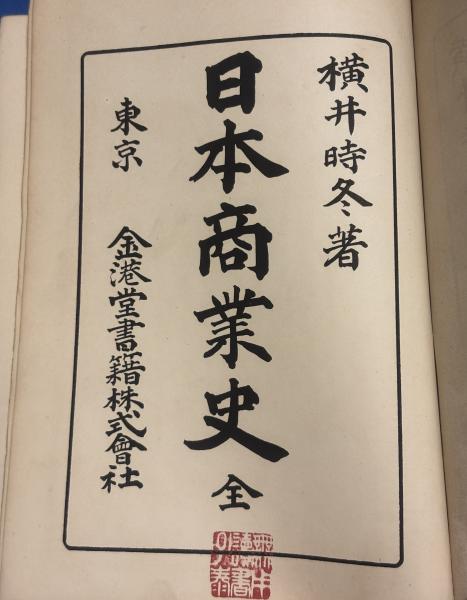 横井時冬著
日本商業史 全
東京 金港堂書籍株式會社